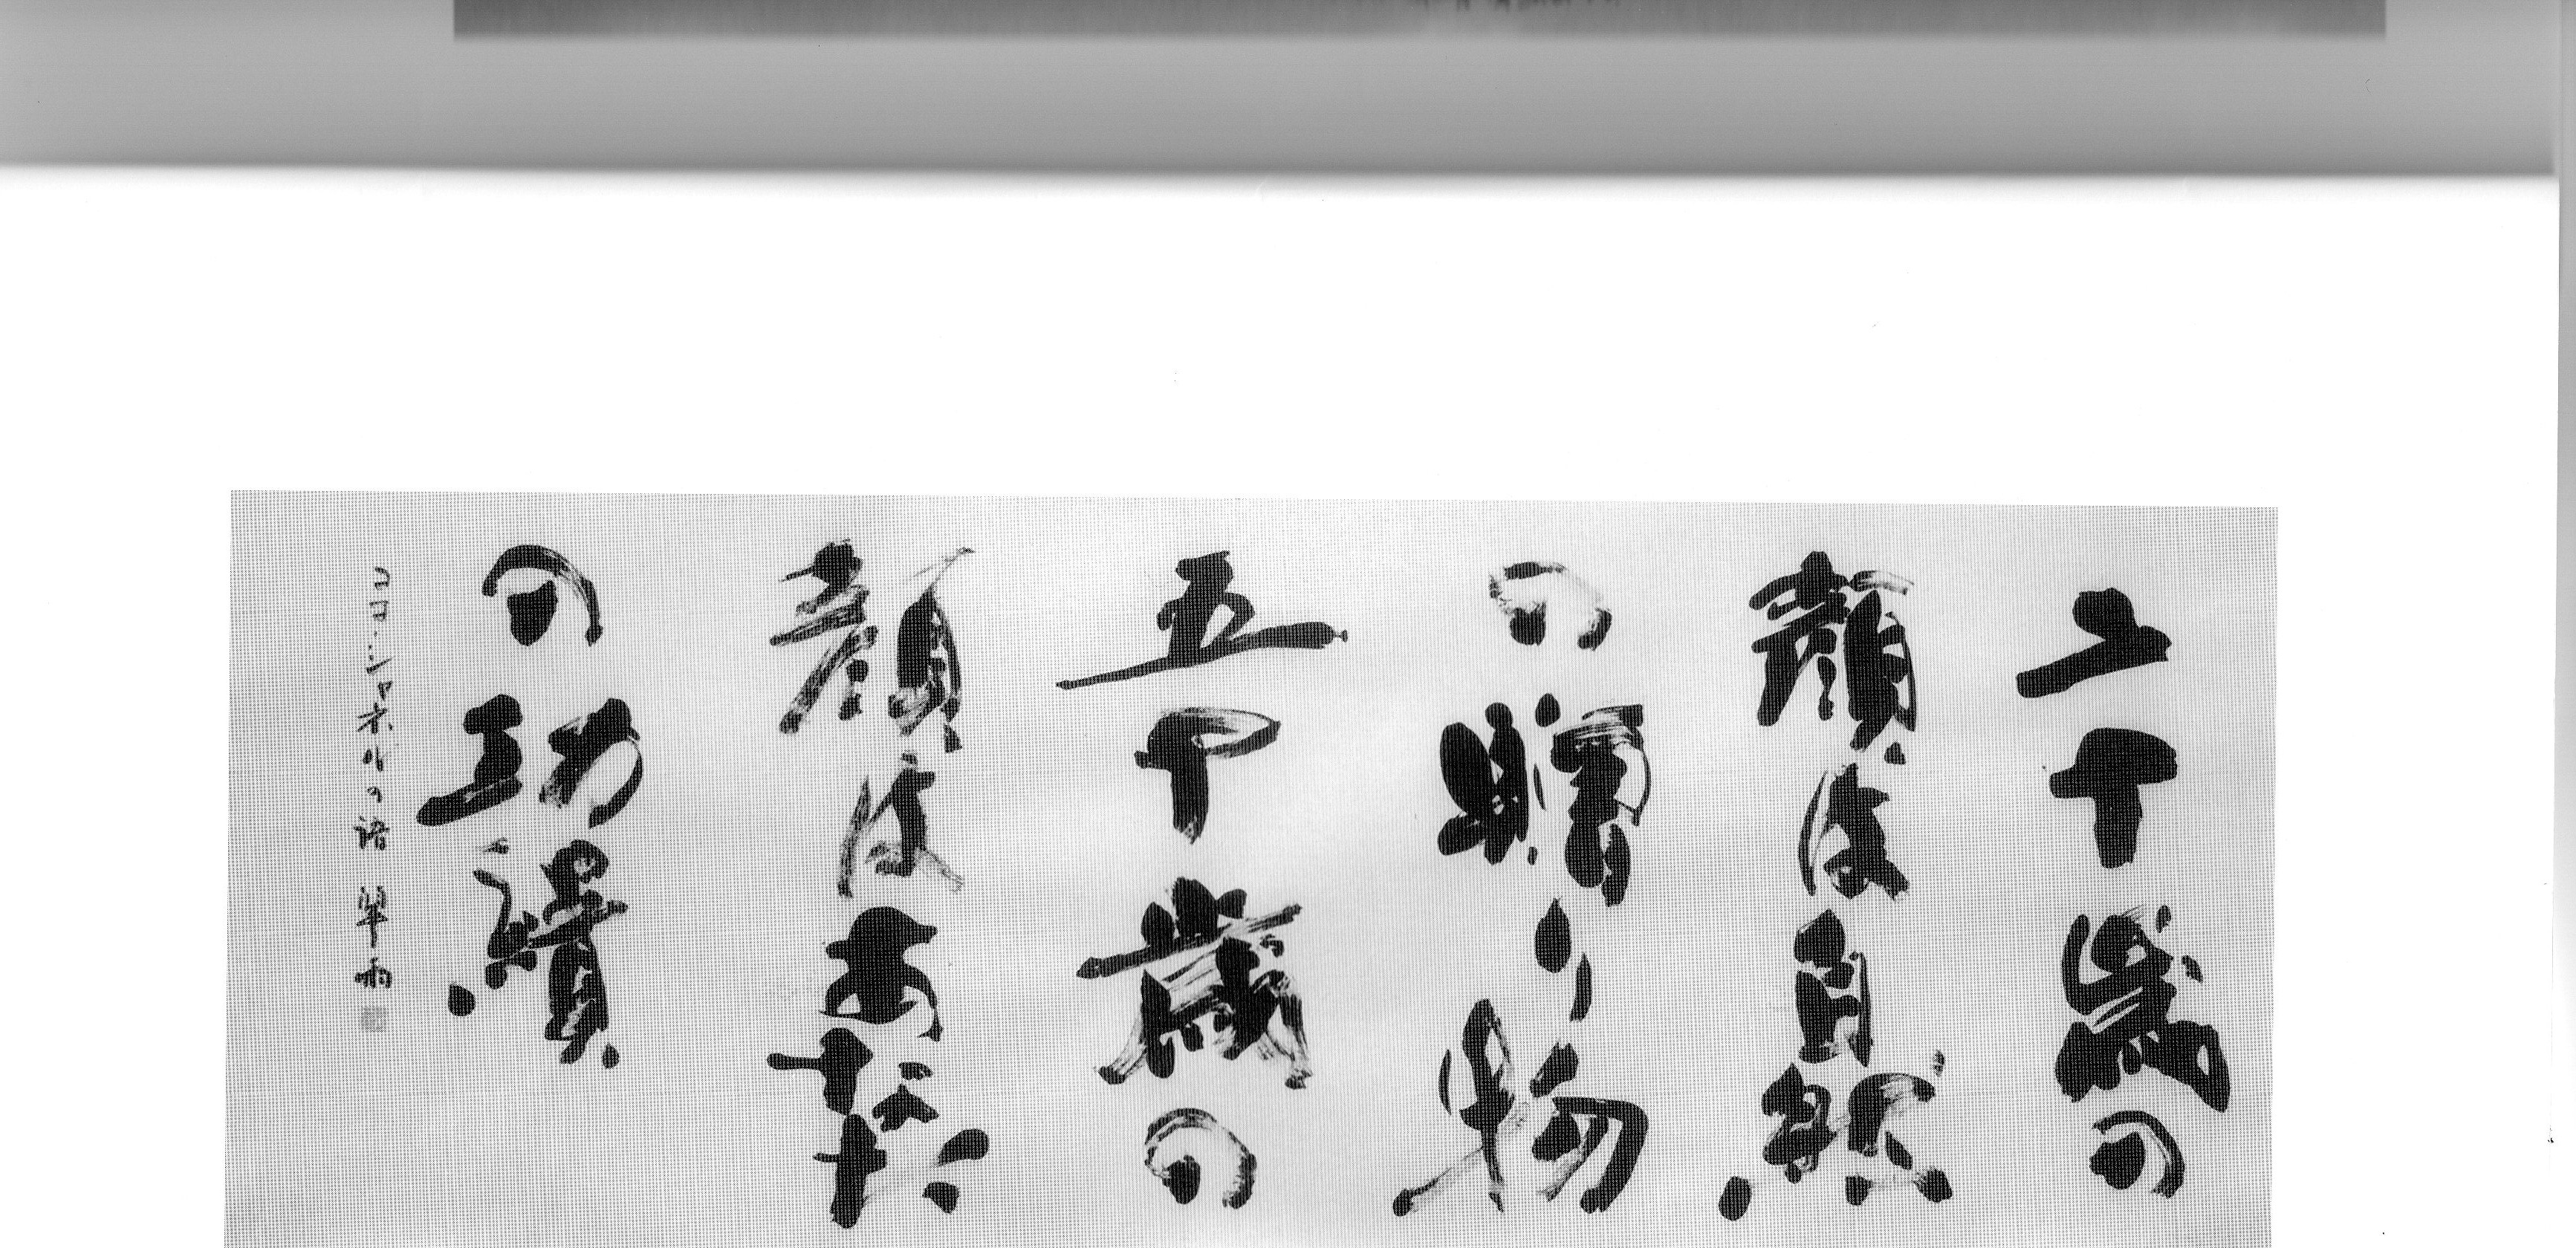 二十歳の
顔は自然
の贈り物
五十歳の
顔はあなた
の功績
ココ・シャネルの語 翠雨